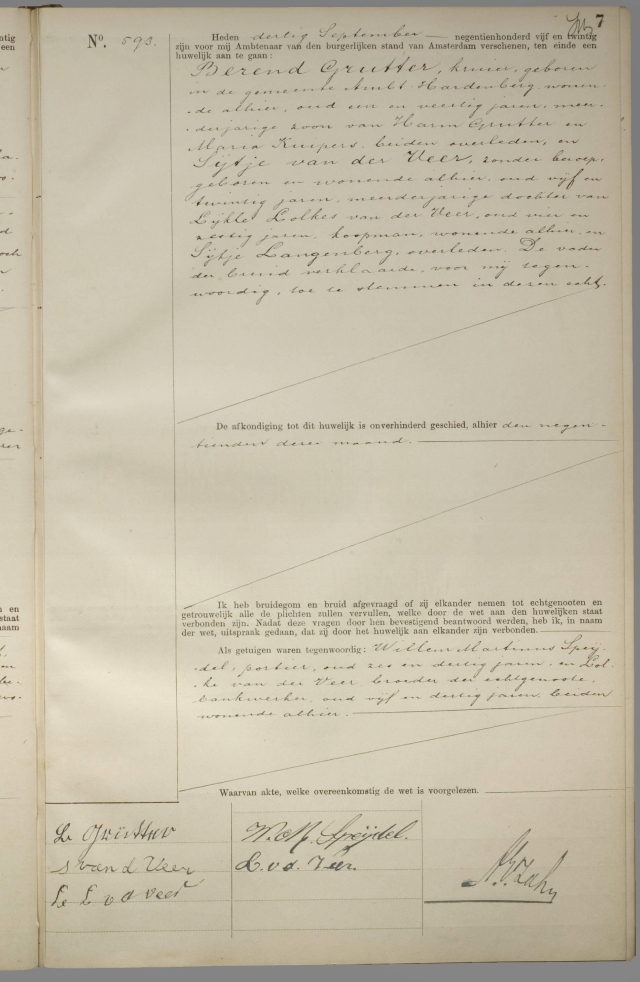 7
No. 593.
Heden dertig September negentienhonderd vijf en twintig
zijn voor mij Ambtenaar van den burgerlijken stand van Amsterdam verschenen, ten einde een
huwelijk aan te gaan:
Berend Grutter, kruier, geboren
in de gemeente Ambt Hardenberg, wonen-
de alhier, oud een en veertig jaren, meer-
derjarige zoon van Harm Grutter en
Maria Kuipers, beiden overleden, en
Sijtje van der Veer, zonder beroep,
geboren en wonende alhier, oud vijf en
twintig jaren, meerderjarige dochter van
Lijkle Lolkes van der Veer, oud vier en
zestig jaren, koopman, wonende alhier, en
Sijtje Langenberg, overleden. De vader
der bruid verklaarde, voor mij tegen-
woordig, toe te stemmen in deren echt.
De afkondiging tot dit huwelijk is onverhinderd geschied, alhier den negen-
tienden dezer maand.
Ik heb bruidegom en bruid afgevraagd of zij elkander nemen tot echtgenooten en
getrouwelijk alle de plichten zullen vervullen, welke door de wet aan den huwelijken staat
verbonden zijn. Nadat deze vragen door hen bevestigend beantwoord werden, heb ik, in naam
der wet, uitspraak gedaan, dat zij door het huwelijk aan elkander zijn verbonden.
Als getuigen waren tegenwoordig: Willem Martinus Speij-
del, portier, oud zes en dertig jaren, en Lol-
ke van der Veer broeder der echtgenoote,
bankwerker, oud vijf en dertig jaren, beiden
wonende alhier.
Waarvan akte, welke overeenkomstig de wet is voorgelezen.
Grutter
W.M. Speijdel.
S van d Veer
L. v.d. Veer.
L v d Veer